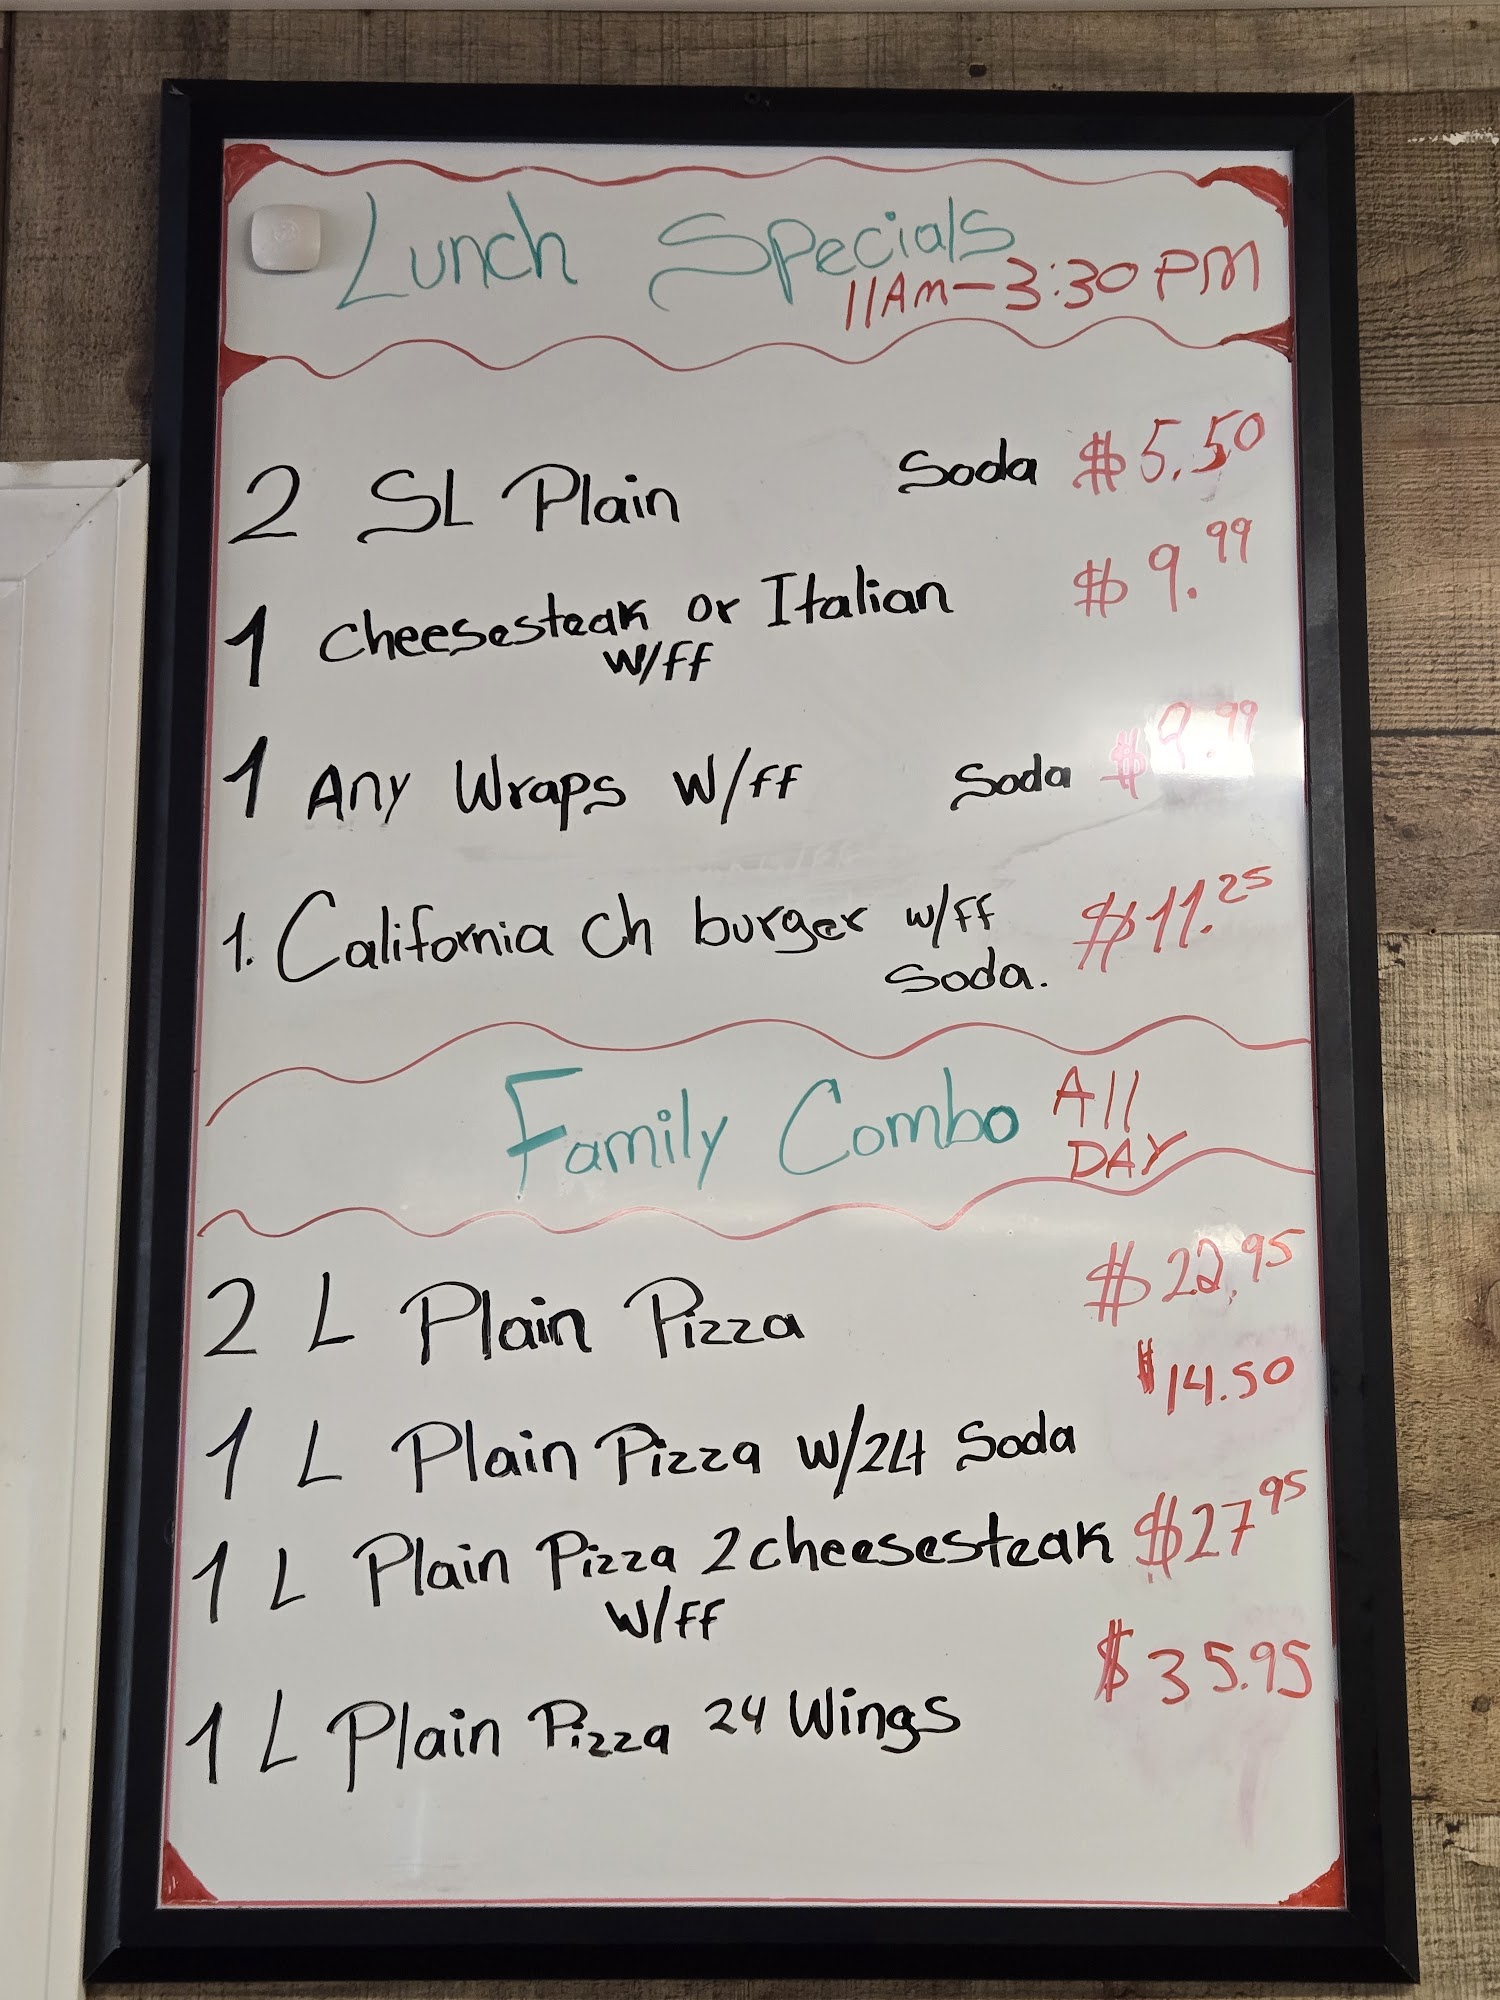 Lunch Specials
11AM-3:30 PM
2 SL Plain Soda $5.50
1 Cheesesteak or Italian $9.99
w/ff
1 Any Wraps w/ff Soda $9.99
1. California Ch burger w/ff $11.25
Soda.
Family Combo All
DAY
2 L Plain Pizza $22.95
1 L Plain Pizza w/2Lt Soda $14.50
1 L Plain Pizza 2 cheesesteak $27 95
w/ff
1 L Plain Pizza 24 Wings $35.95